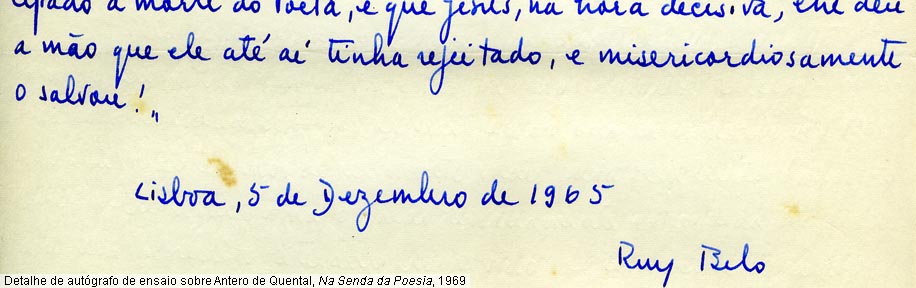 a morte do Poeta, e que Jesus, na hora decisiva, lhe deu
a mão que ele até aí tinha rejeitado, e misericordiosamente
o salvou!"
Lisboa, 5 de Dezembro de 1965
Ruy Belo
Detalhe de autógrafo de ensaio sobre Antero de Quental, Na Senda da Poesia, 1969